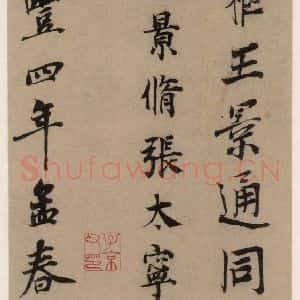 王景通同
景脩張太寧
豐四年孟春
Shufawang.CN